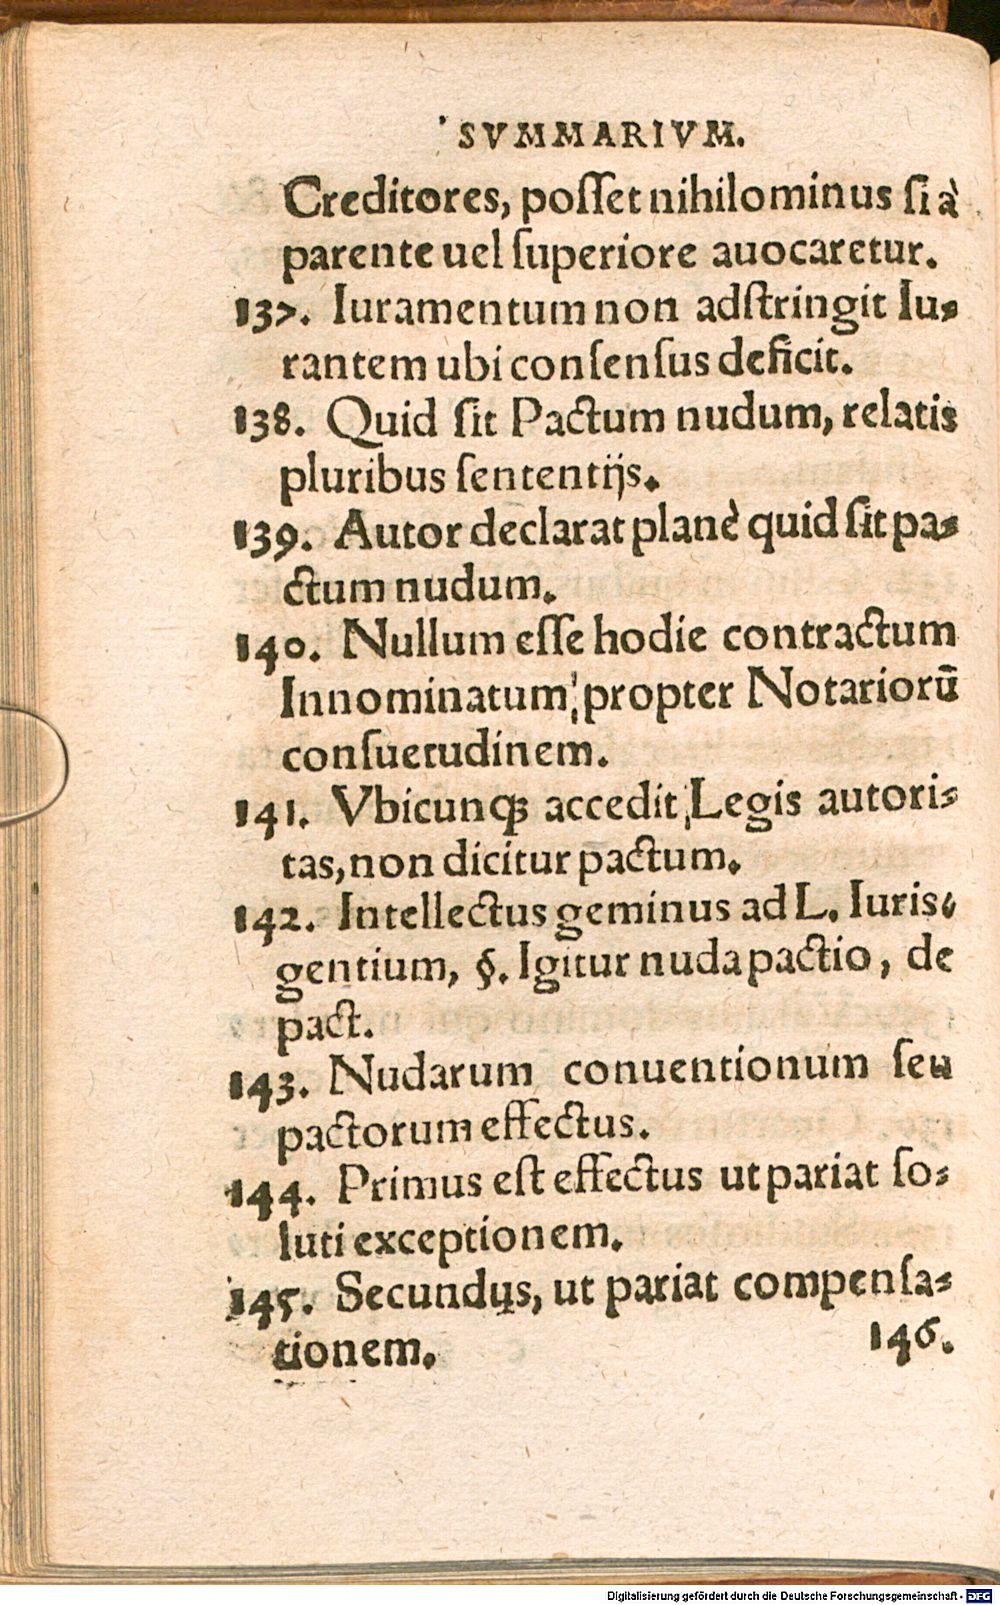 SVMMARIVM.
Creditores, posset nihilominus si à
parente uel superiore auocaretur.
137. Iuramentum non adstringit Iu-
rantem ubi consensus deficit.
138. Quid sit Pactum nudum, relatis
pluribus sententijs.
139. Autor declarat planè quid sit pa-
ctum nudum.
140. Nullum esse hodie contractum
Innominatum, propter Notariorū
consuetudinem.
141. Vbicunqꝫ accedit Legis autori-
tas, non dicitur pactum.
142. Intellectus geminus ad L. Iuris-
gentium, §. Igitur nuda pactio, de
pact.
143. Nudarum conuentionum seu
pactorum effectus.
144. Primus est effectus ut pariat so-
luti exceptionem.
145. Secundus, ut pariat compensa-
tionem.
146.
Digitalisierung gefördert durch die Deutsche Forschungsgemeinschaft - DFG